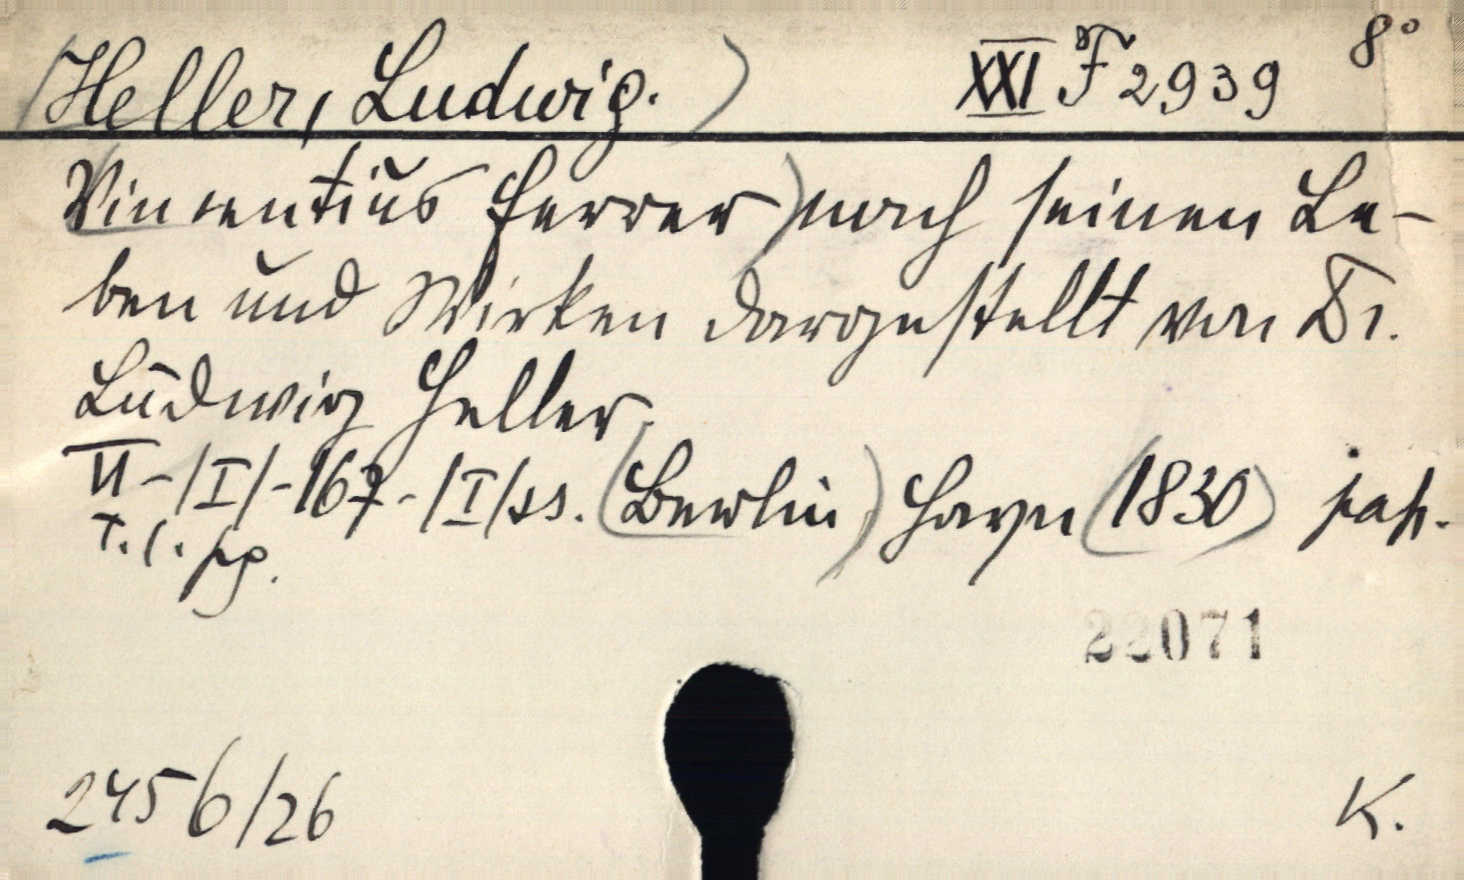 (Heller, Ludwig.) XXI F 2939 8°
Vincentius Ferrer) nach seinen Le-
ben und Wirken dargestellt von Dr.
Ludwig Heller.
II-/I/-167-/I/ss. (Berlin) Hayn (1830) pap.
T. l. pg.
22071
2456/26 K.